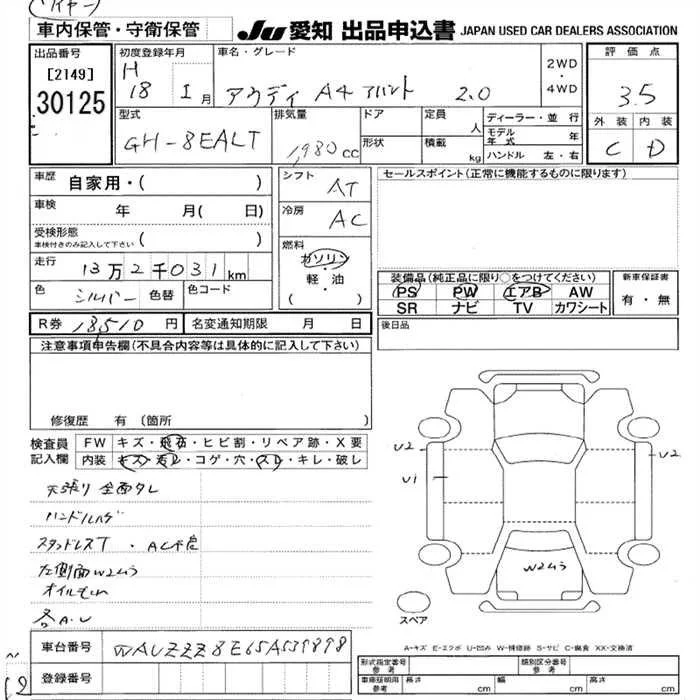 車内保管・守衛保管
JU 愛知 出品申込書 JAPAN USED CAR DEALERS ASSOCIATION
出品番号
[2149]
30125
初度登録年月
H 18 1 月
車名・グレード
アウディ A4 アバント 2.0
2WD
・
4WD
評価点
3.5
外装 内装
C D
型式
GH-8EALT
排気量
1,980 cc
ドア
形状
定員 人
積載 kg
ディーラー・並行
モデル年式 年
ハンドル 左・右
車歴 自家用・( )
車検 年 月( 日)
受検形態
車検付きのみ記入して下さい ( )
走行 13万2千031 km
色 シルバー 色替 色コード
R券 18,510 円 名変通知期限 月 日
シフト
AT
冷房
AC
燃料
ガソリン
・
軽・油
( )
セールスポイント(正常に機能するものに限ります)
装備品(純正品に限り○をつけてください)
PS PW エアB AW
SR ナビ TV カワシート
新車保証書
有・無
後日品
注意事項申告欄(不具合内容等は具体的に記入して下さい)
修復歴 有 (箇所
検査員記入欄
FW キズ・飛石・ヒビ割・リペア跡・X要
内装 キズ・汚レ・コゲ・穴・スレ・キレ・破レ
天張り 全面タレ
ハンドルハゲ
スタッドレスT・AC不良
左側面W2ムラ
オイルモレ
各A.U
U2
U1
U2
W2ムラ
スペア
A-キズ E-エクボ U-凹み W-補修跡 S-サビ C-腐食 XX-交換済
車台番号 WAUZZZ8E65A539898
登録番号
形式指定番号 参考
類別区分番号 参考
車庫証明用 参考 長さ cm 幅 cm 高さ cm